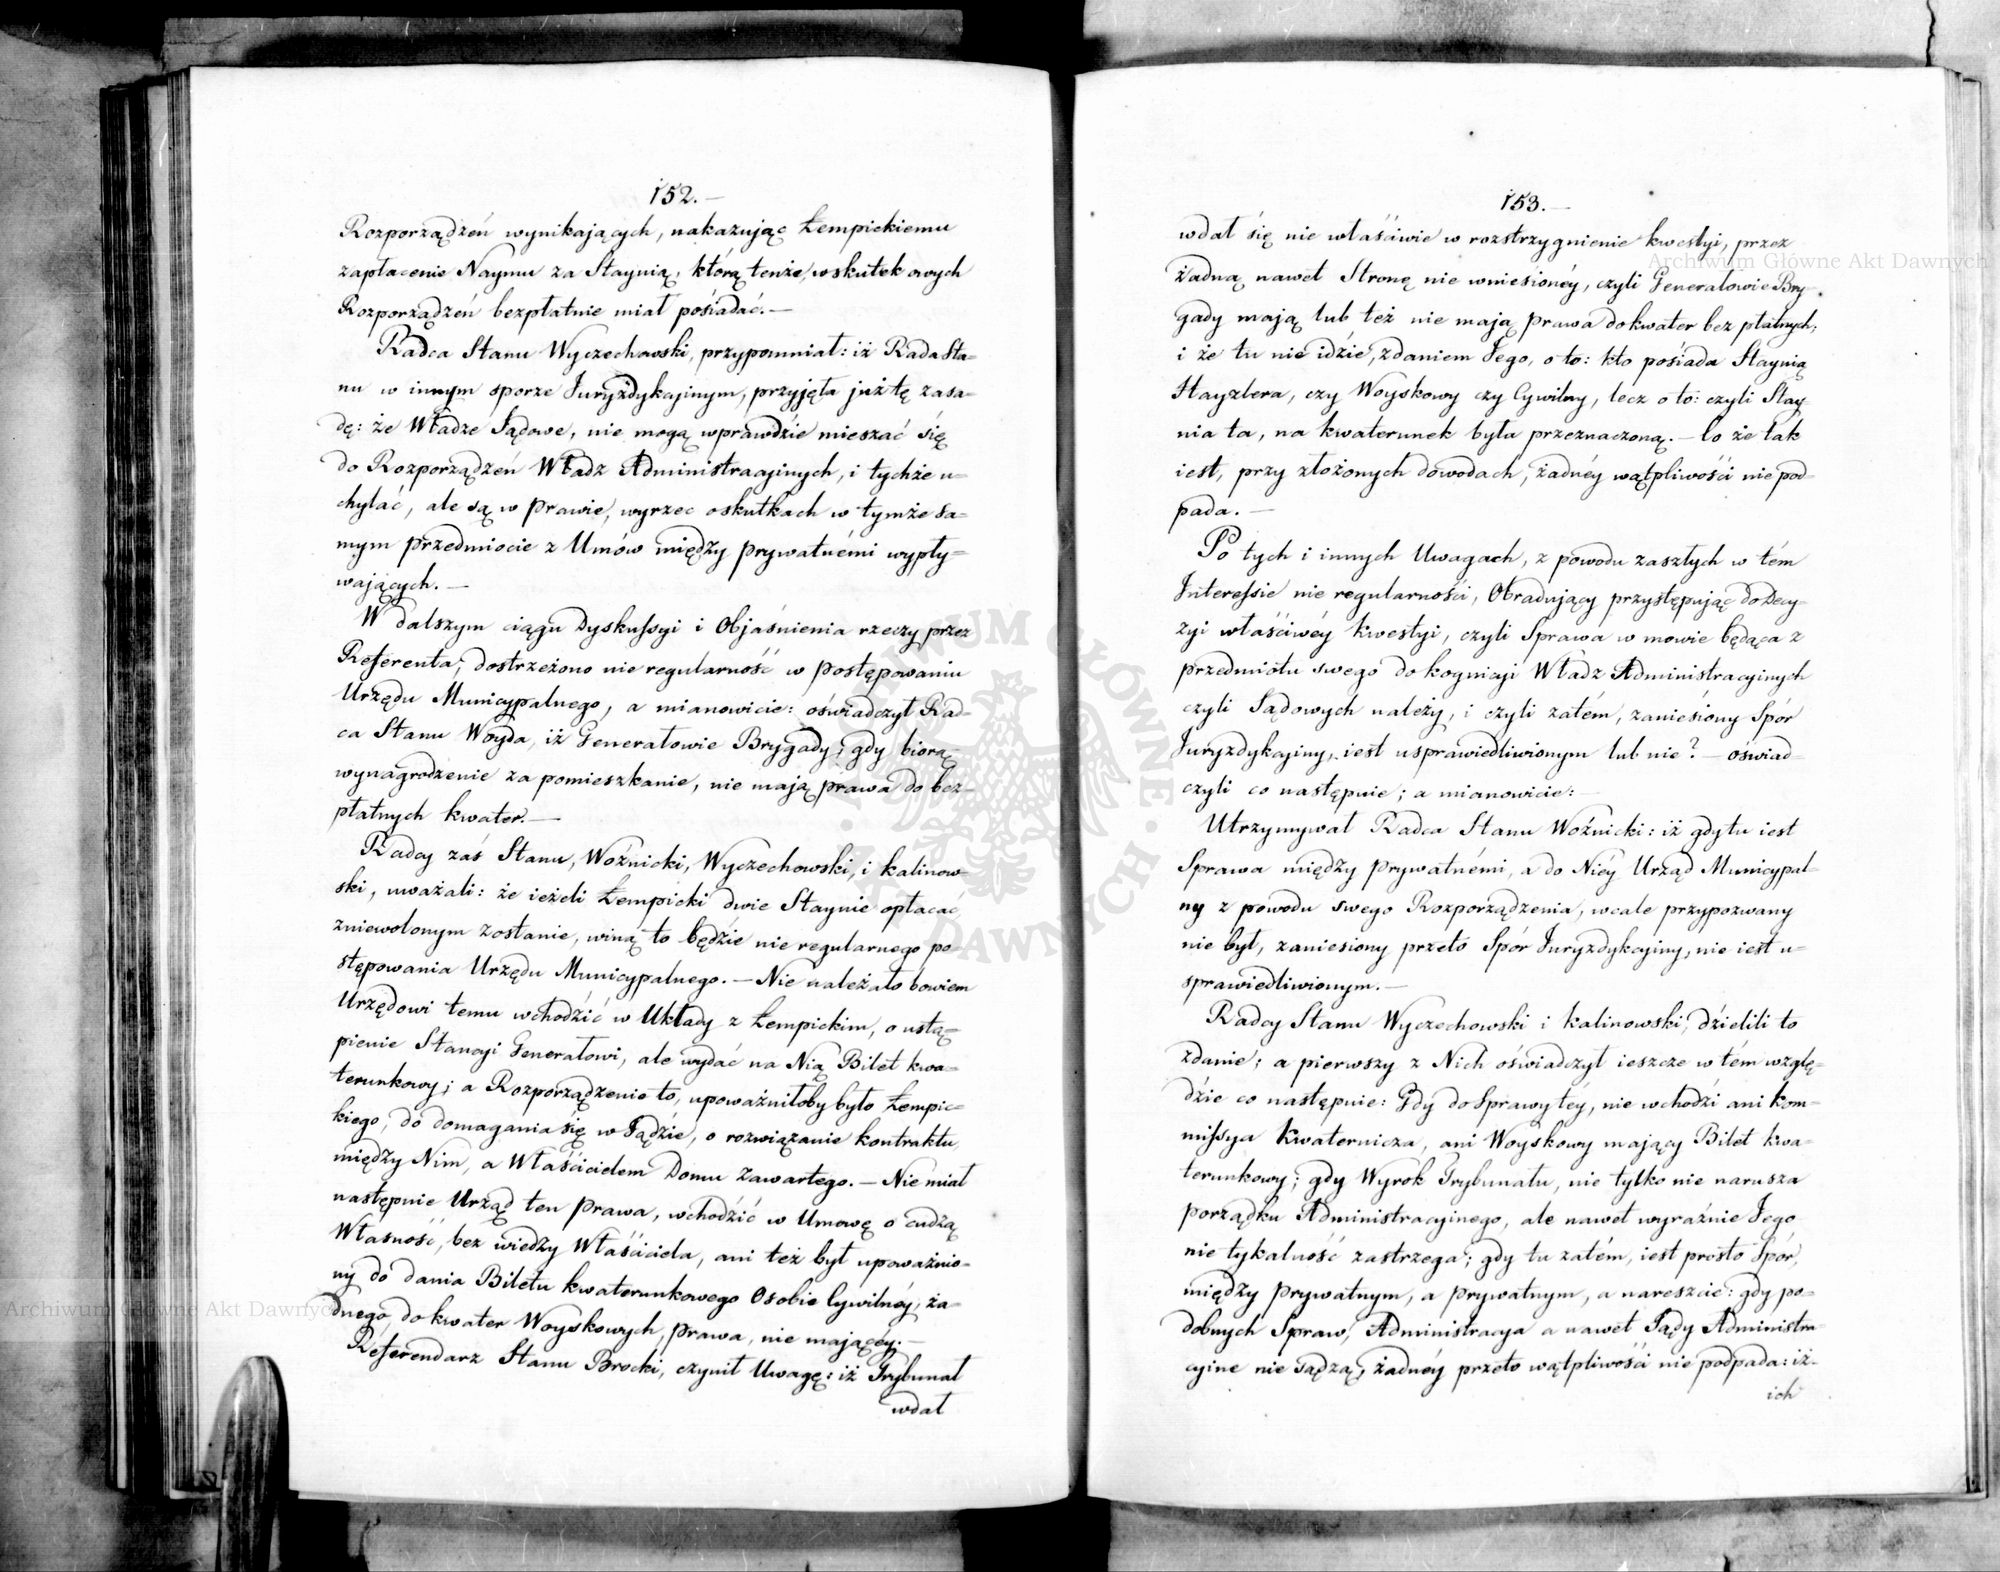 152.—
Rozporządzeń wynikających, nakazując Łempickiemu
zapłacenie Naymu za Staynią, którą tenże, wskutek owych
Rozporządzeń bezpłatnie miał pośiadać.—
Radca Stanu Wyczechowski, przypomniał: iż Rada Sta=
nu w innym sporze Juryzdykcyinym, przyjęła już tę zasa=
dę: że Władze Sądowe, nie mogą wprawdzie mieszać się
do Rozporządzeń Władz Administracyinych, i tychże u=
chylać, ale są w prawie, wyrzec o skutkach w tymże sa=
mym przedmiocie z Umów między prywatnémi wypły=
wających.—
W dalszym ciągu Dyskussyi i Objaśnienia rzeczy przez
Referenta, dostrzeżono nie regularność w postępowaniu
Urzędu Municypalnego, a mianowicie: oświadczył Rad=
ca Stanu Woyda, iż Generałowie Brygady, gdy biorą
wynagrodzenie za pomieszkanie, nie mają prawa do bez=
płatnych kwater.—
Radcy zaś Stanu, Woźnicki, Wyczechowski, i Kalinow=
ski, uważali: że ieżeli Łempicki dwie Staynie opłacać,
zniewolonym zostanie, winą to będzie nie regularnego po=
stępowania Urzędu Municypalnego.— Nie należało bowiem
Urzędowi temu wchodzić w Układy z Łempickim, o ustą=
pienie Stancyi Generałowi, ale wydać na Nią Bilet kwa=
terunkowy; a Rozporządzenie to, upoważniłoby było Łempic=
kiego, do domagania się w Sądzie, o rozwiązanie kontraktu,
między Nim, a Właścicielem Domu zawartego.— Nie miał
następnie Urząd ten prawa, wchodzić w Umowę o cudzą
Własność, bez wiedzy Właściciela, ani też był upoważnio=
ny do dania Biletu kwaterunkowego Osobie Cywilnéy, ża=
dnego, do kwater Woyskowych, prawa, nie mającéy.—
Referendarz Stanu Brocki, czynił Uwagę: iż Trybunał
wdał
153.—
wdał się nie właściwie w rozstrzygnienie kwestyi, przez
żadną nawet Stronę nie wniesionéy, czyli Generałowie Bry=
gady mają lub też nie mają prawa do kwater bez płatnych;
i że tu nie idzie, zdaniem Jego, o to: kto pośiada Staynią
Hayzlera, czy Woyskowy czy Cywilny, lecz o to: czyli Stay=
nia ta, na kwaterunek była przeznaczoną.— Co że tak
iest, przy złożonych dowodach, żadnéy wątpliwości nie pod=
pada.—
Po tych i innych Uwagach, z powodu zaszłych w tém
Interessie nie regularności, Obradujący przystępując do Decy=
zyi właściwéy kwestyi, czyli Sprawa w mowie będąca z
przedmiotu swego do kognicyi Władz Administracyinych
czyli Sądowych należy, i czyli zatém, zaniesiony Spór
Juryzdykcyiny, iest usprawiedliwionym lub nie?— oświad=
czyli co następuie; a mianowicie:—
Utrzymywał Radca Stanu Woźnicki: iż gdy tu iest
Sprawa między prywatnémi, a do Niéy Urząd Municypal=
ny z powodu swego Rozporządzenia, wcale przypozwany
nie był, zaniesiony przeto Spór Juryzdykcyiny, nie iest u=
sprawiedliwionym.—
Radcy Stanu Wyczechowski i Kalinowski, dzielili to
zdanie; a pierwszy z Nich oświadczył ieszcze w tém wzglę=
dzie co następuie: Gdy do Sprawy téy, nie wchodzi ani Kom=
missya Kwaternicza, ani Woyskowy mający Bilet kwa=
terunkowy; gdy Wyrok Trybunału, nie tylko nie narusza
porządku Administracyinego, ale nawet wyraźnie Jego
nie tykalność zastrzega; gdy tu zatém, iest prosto Spór,
między Prywatnym, a Prywatnym, a nareszcie: gdy po=
dobnych Spraw, Administracya a nawet Sądy Administra=
cyine nie sądzą, żadnéy przeto wątpliwości nie podpada: iż
ich
Archiwum Główne Akt Dawnych
Archiwum Główne Akt Dawnych
ARCHIWUM GŁÓWNE
AKT DAWNYCH